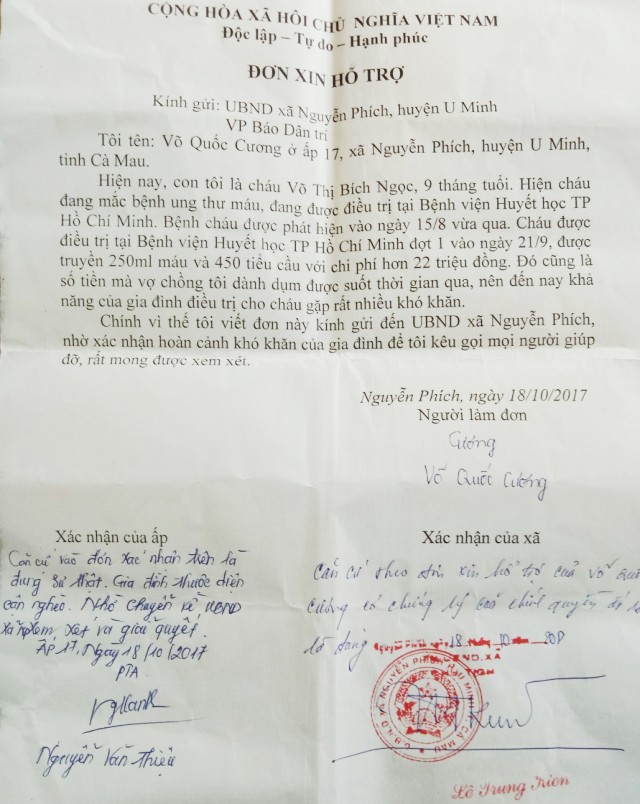 CỘNG HÒA XÃ HÔI CHỦ NGHĨA VIỆT NAM
Độc lập – Tự do – Hạnh phúc
ĐƠN XIN HỖ TRỢ
Kính gửi: UBND xã Nguyễn Phích, huyện U Minh
VP Báo Dân trí
Tôi tên: Võ Quốc Cương ở ấp 17, xã Nguyễn Phích, huyện U Minh,
tỉnh Cà Mau.
Hiện nay, con tôi là cháu Võ Thị Bích Ngọc, 9 tháng tuổi. Hiện cháu
đang mắc bệnh ung thư máu, đang được điều trị tại Bệnh viện Huyết học TP
Hồ Chí Minh. Bệnh cháu được phát hiện vào ngày 15/8 vừa qua. Cháu được
điều trị tại Bệnh viện Huyết học TP Hồ Chí Minh đợt 1 vào ngày 21/9, được
truyền 250ml máu và 450 tiểu cầu với chi phí hơn 22 triệu đồng. Đó cũng là
số tiền mà vợ chồng tôi dành dụm được suốt thời gian qua, nên đến nay khả
năng của gia đình điều trị cho cháu gặp rất nhiều khó khăn.
Chính vì thế tôi viết đơn này kính gửi đến UBND xã Nguyễn Phích,
nhờ xác nhận hoàn cảnh khó khăn của gia đình để tôi kêu gọi mọi người giúp
đỡ, rất mong được xem xét.
Nguyễn Phích, ngày 18/10/2017
Người làm đơn
Cương
Võ Quốc Cương
Xác nhận của ấp
Căn cứ vào đơn xác nhận trên là
đúng sự thật. Gia đình thuộc diện
cận nghèo. Nhờ chuyển về UBND
xã xem xét và giải quyết.
ẤP 17, Ngày 18/10/2017
PTA
Nguyễn Văn Thiệu
Xác nhận của xã
Căn cứ theo đơn xin hỗ trợ của Võ Quốc
Cương có chứng lý của chính quyền
18 10
UBND.XÃ
U.B.N.D XÃ NGUYỄN PHÍCH H.U MINH
CÀ MAU
Lê Trung Kiên